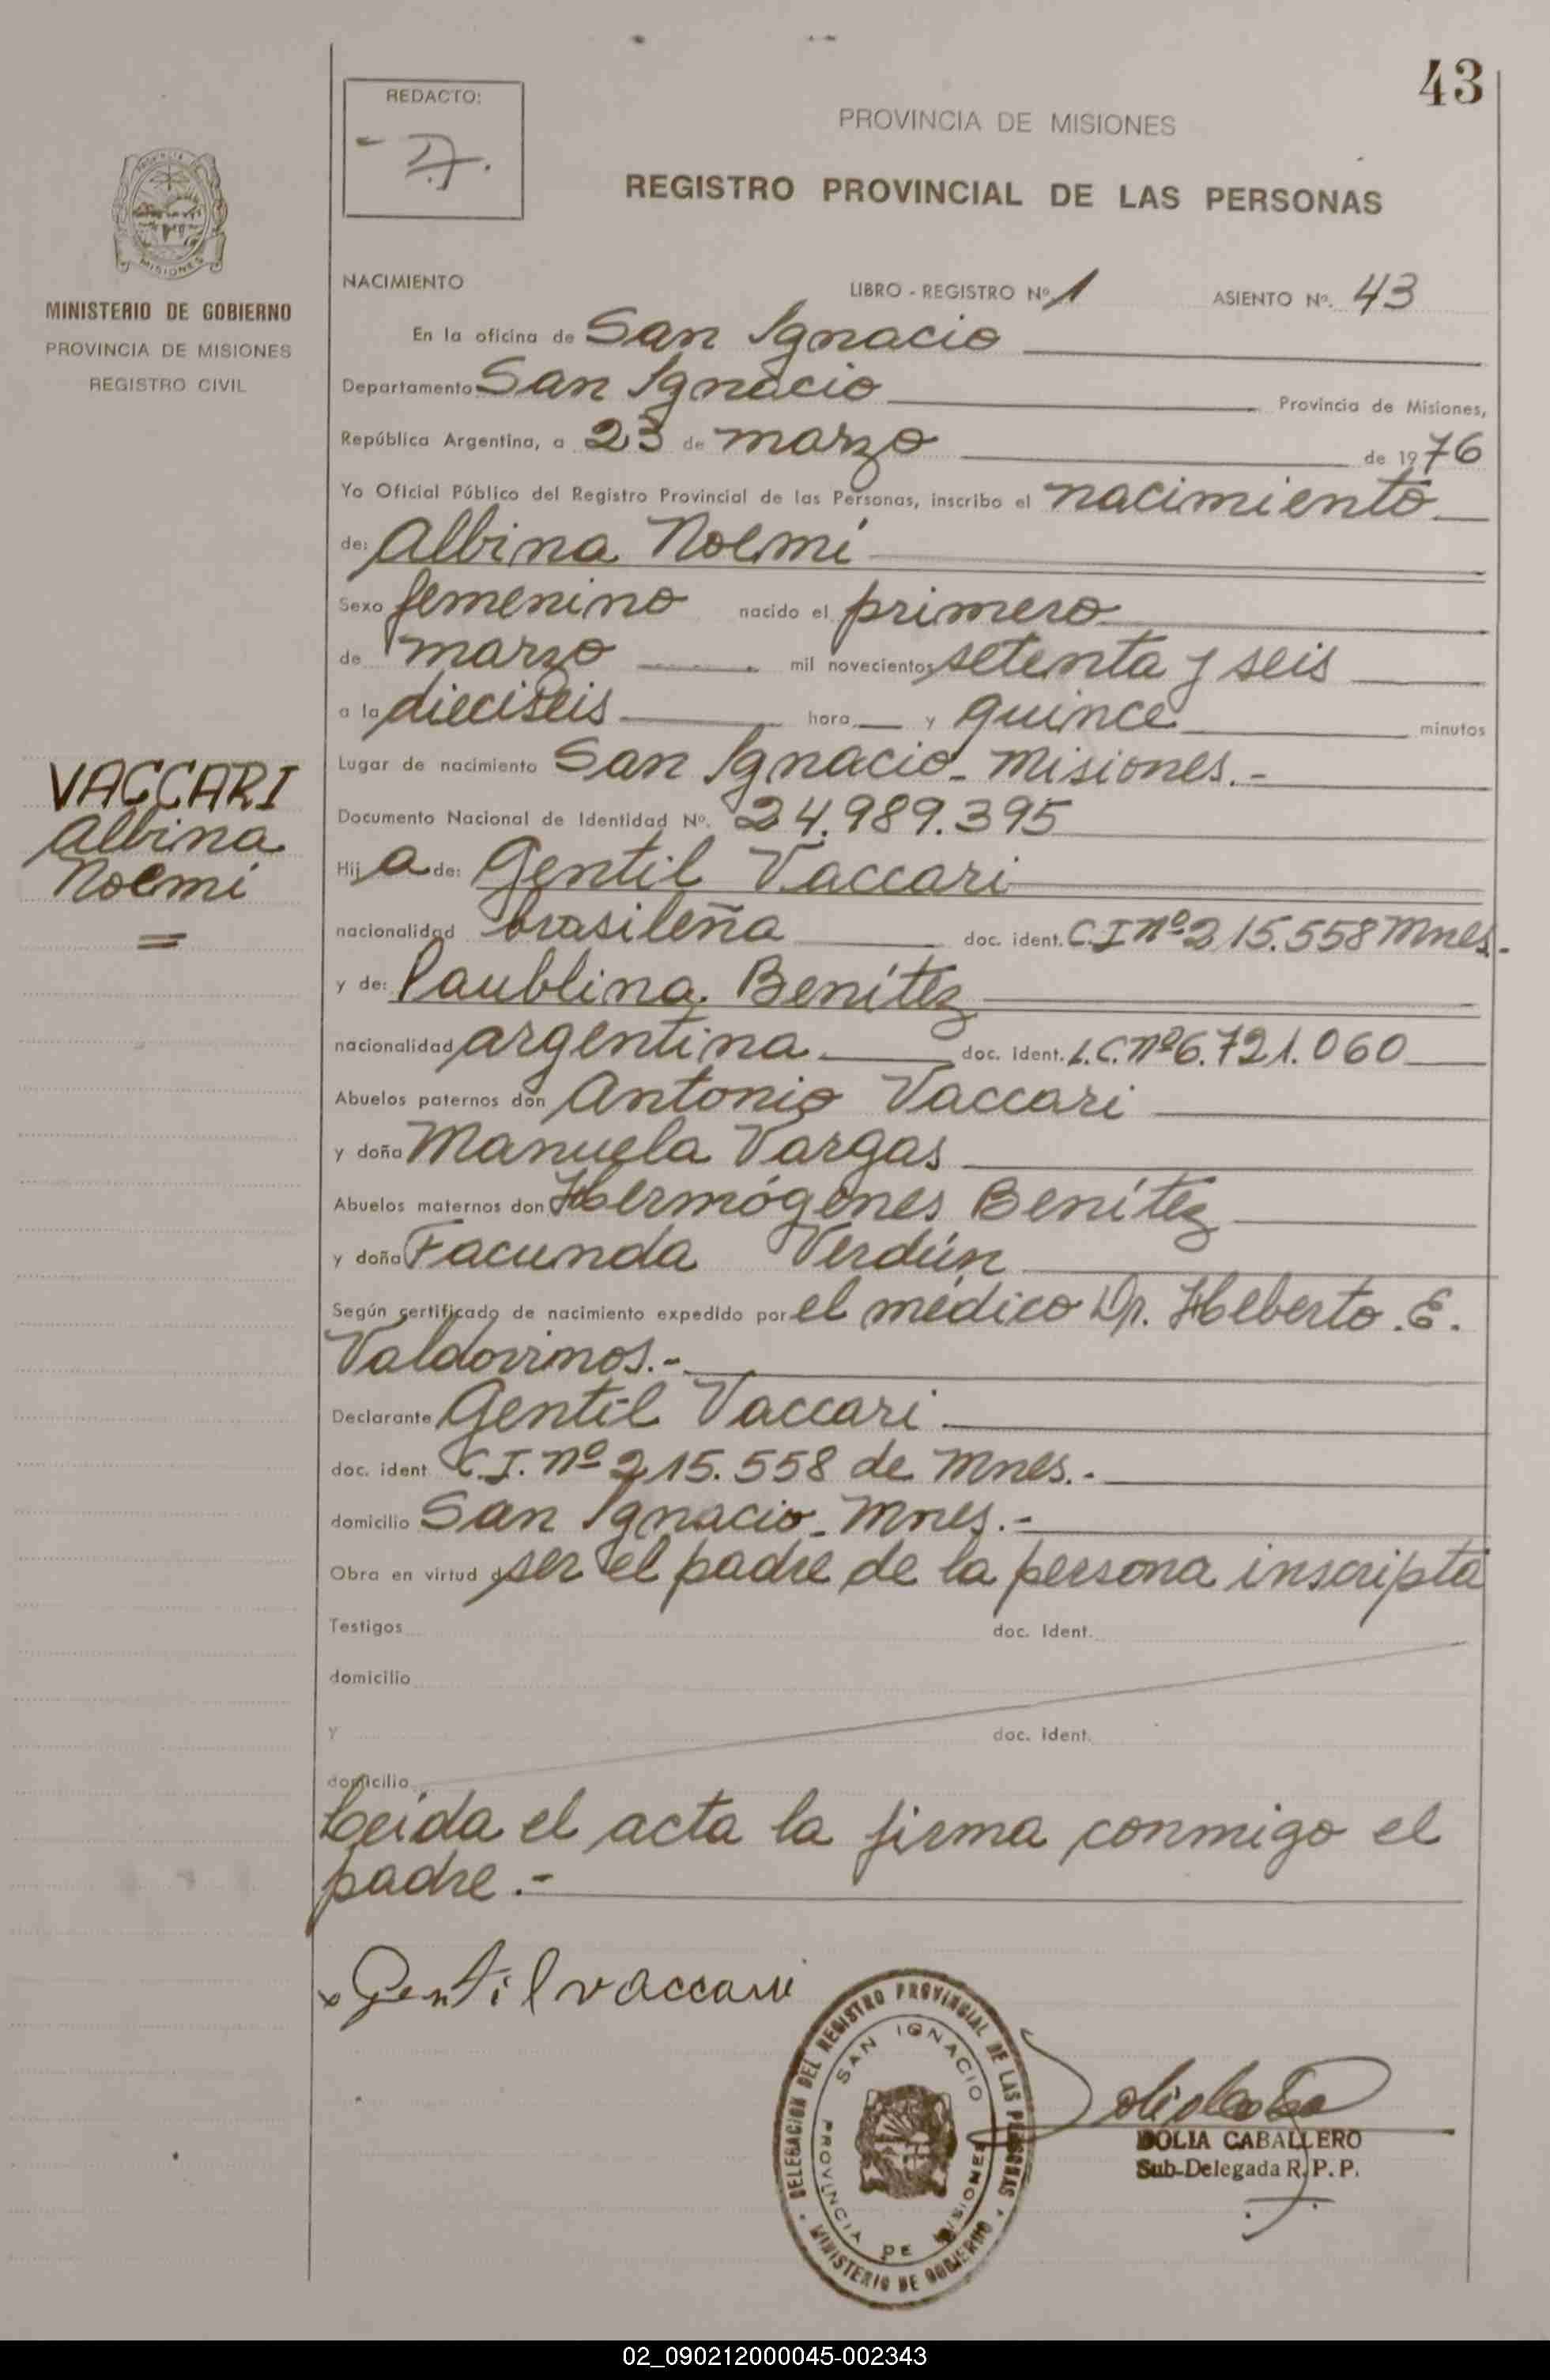 43
REDACTO:
PROVINCIA DE MISIONES
REGISTRO PROVINCIAL DE LAS PERSONAS
MISIONES
MINISTERIO DE GOBIERNO
PROVINCIA DE MISIONES
REGISTRO CIVIL
NACIMIENTO LIBRO - REGISTRO Nº 1 ASIENTO Nº. 43
En la oficina de San Ignacio
Departamento San Ignacio Provincia de Misiones,
República Argentina, a 23 de marzo de 1976
Yo Oficial Público del Registro Provincial de las Personas, inscribo el nacimiento
de: Albina Noemí
Sexo femenino nacido el primero
de marzo mil novecientos setenta y seis
a la dieciseis hora y quince minutos
Lugar de nacimiento San Ignacio - Misiones.-
VACCARI
Albina
Noemí
=
Documento Nacional de Identidad Nº. 24.989.395
Hij a de: Gentil Vaccari
nacionalidad brasileña doc. ident. C.I nº 215.558 Mnes.-
y de: Paublina Benítez
nacionalidad argentina doc. ident. L.C. nº 6.721.060
Abuelos paternos don Antonio Vaccari
y doña Manuela Vargas
Abuelos maternos don Hermógenes Benítez
y doña Facunda Verdún
Según certificado de nacimiento expedido por el médico Dr. Heberto E.
Valdovinos.-
Declarante Gentil Vaccari
doc. ident C.I. nº 215.558 de Mnes.-
domicilio San Ignacio - Mnes.-
Obra en virtud d ser el padre de la persona inscripta
Testigos doc. ident.
domicilio
Y doc. ident.
domicilio
Leída el acta la firma conmigo el
padre.-
x Gentil vaccari
DELEGACION DEL REGISTRO PROVINCIAL DE LAS PERSONAS
SAN IGNACIO
PROVINCIA DE MISIONES
MINISTERIO DE GOBIERNO
DOLIA CABALLERO
Sub-Delegada R.P.P.
02_090212000045-002343